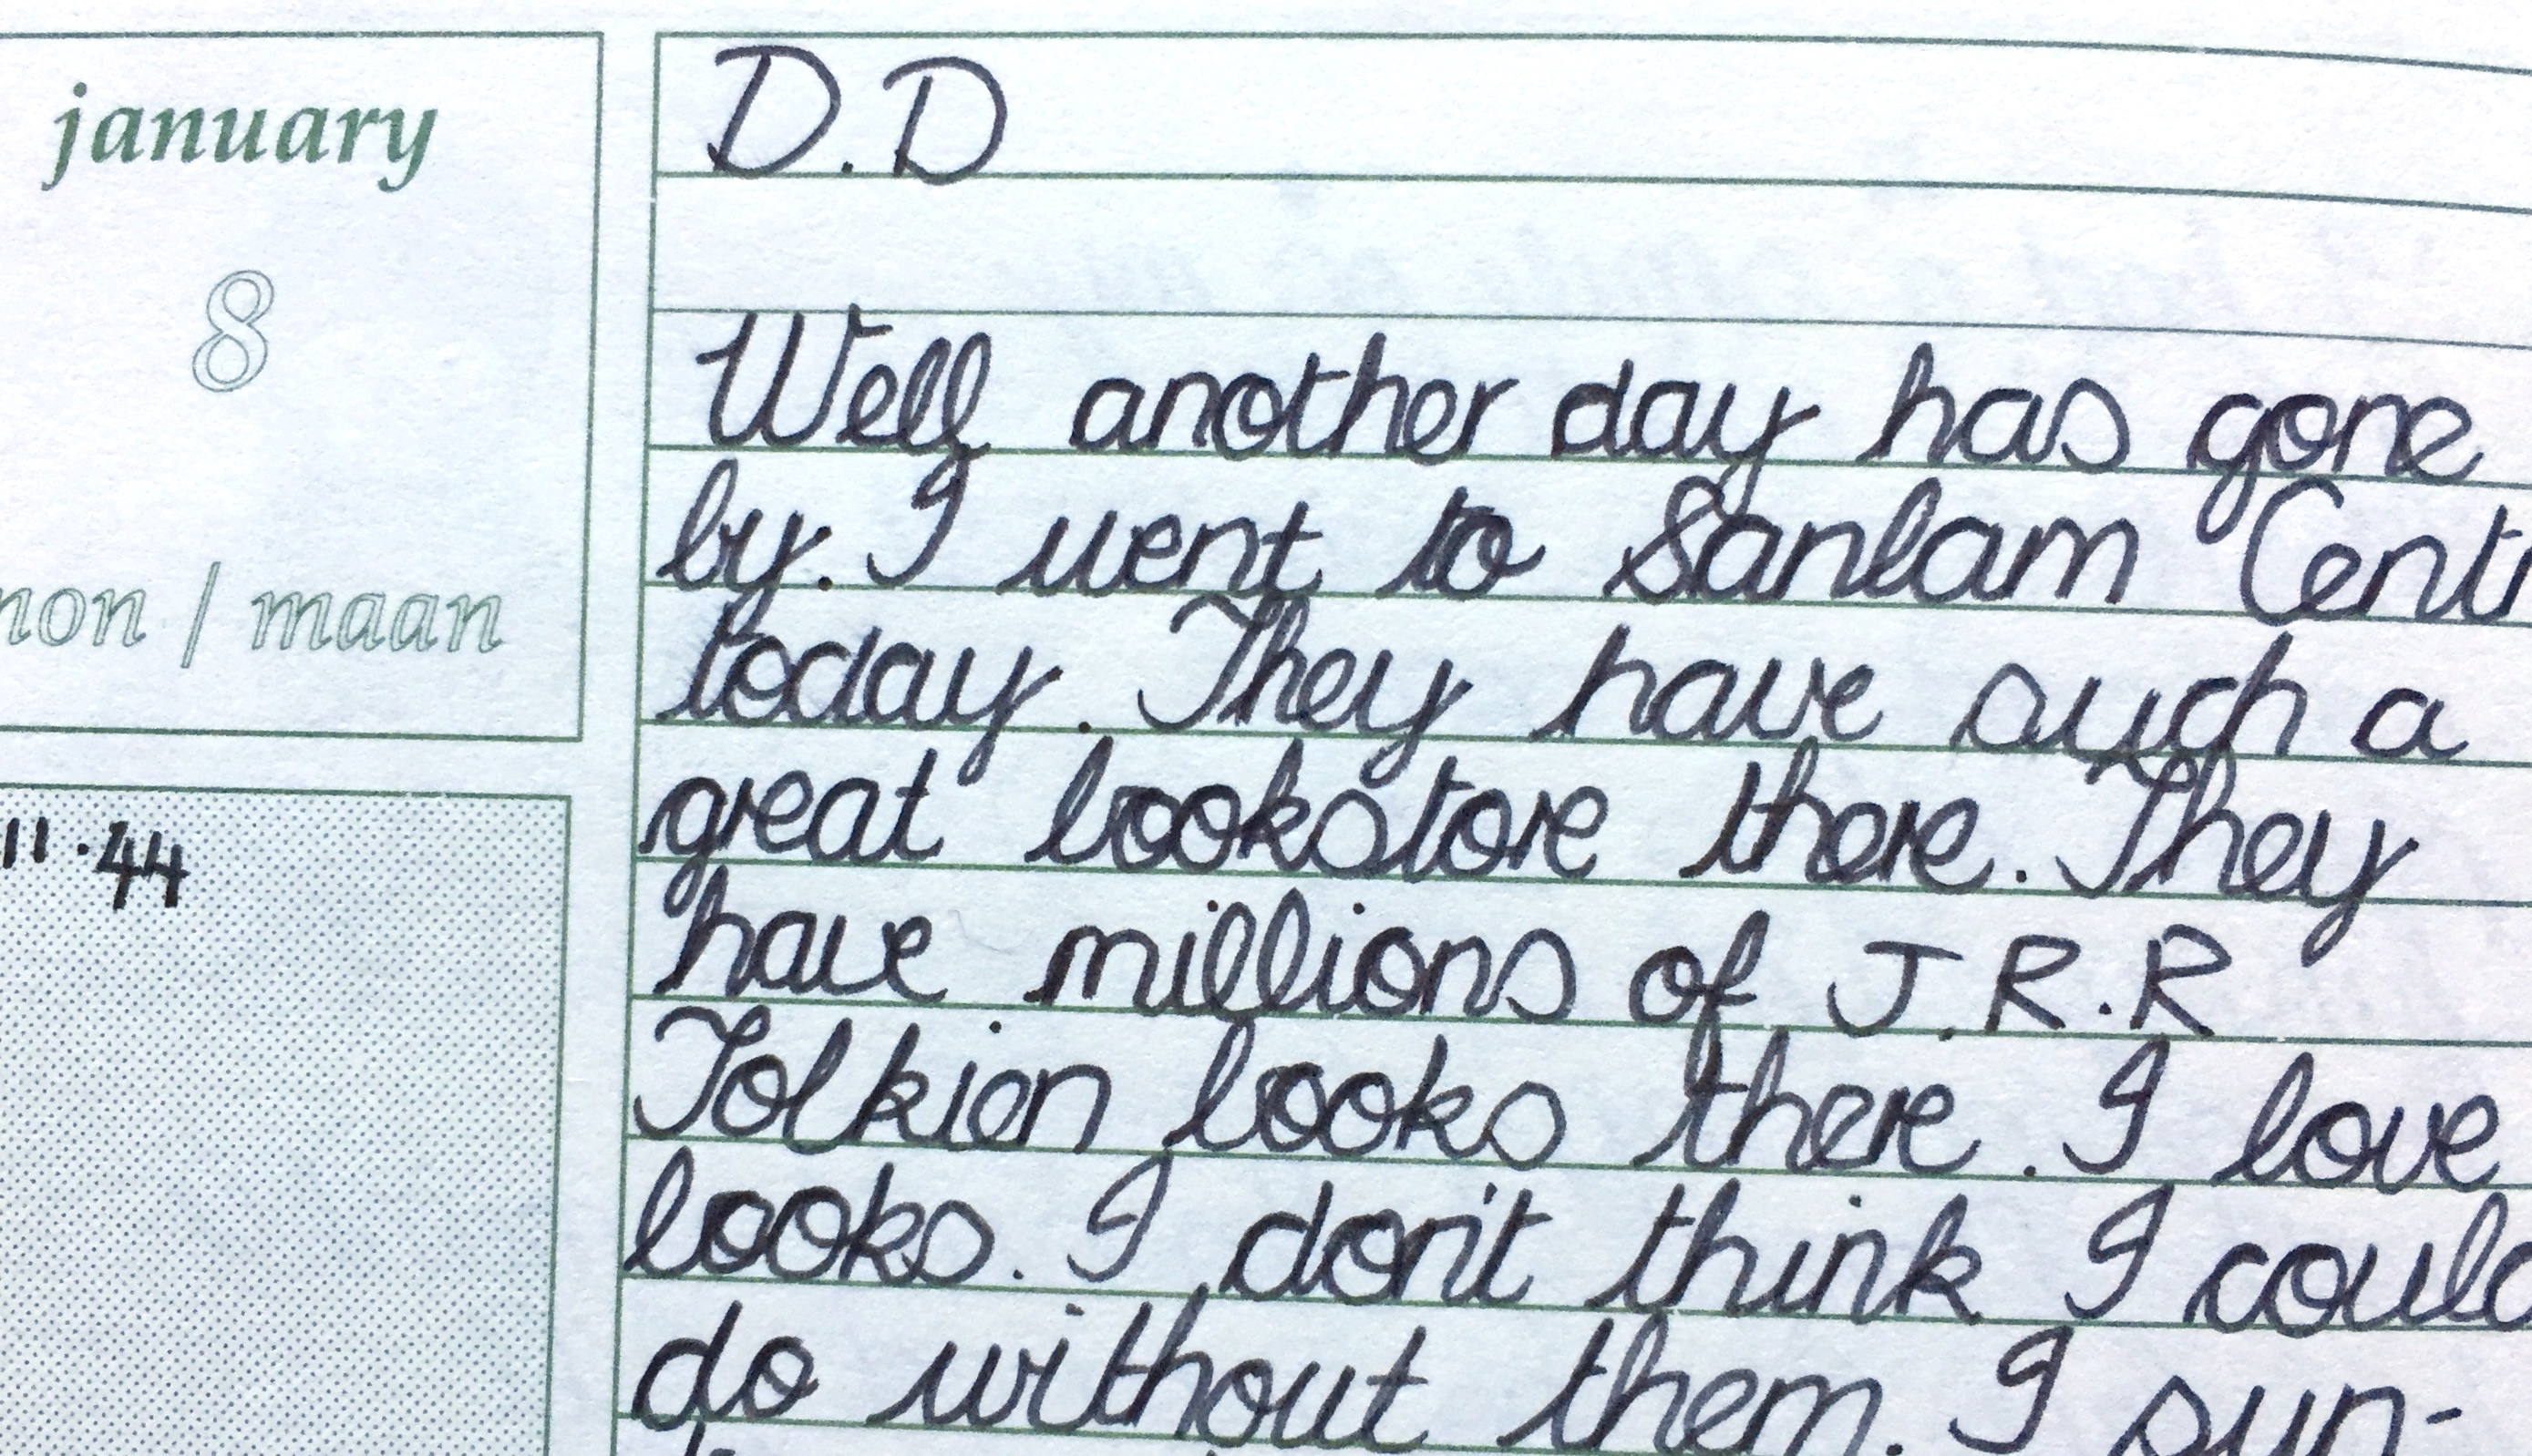 january
8
mon / maan
11.44
D.D
Well another day has gone
by. I went to Sanlam Cent
today. They have such a
great bookstore there. They
have millions of J.R.R
Tolkien books there. I love
books. I don't think I could
do without them. I sun-